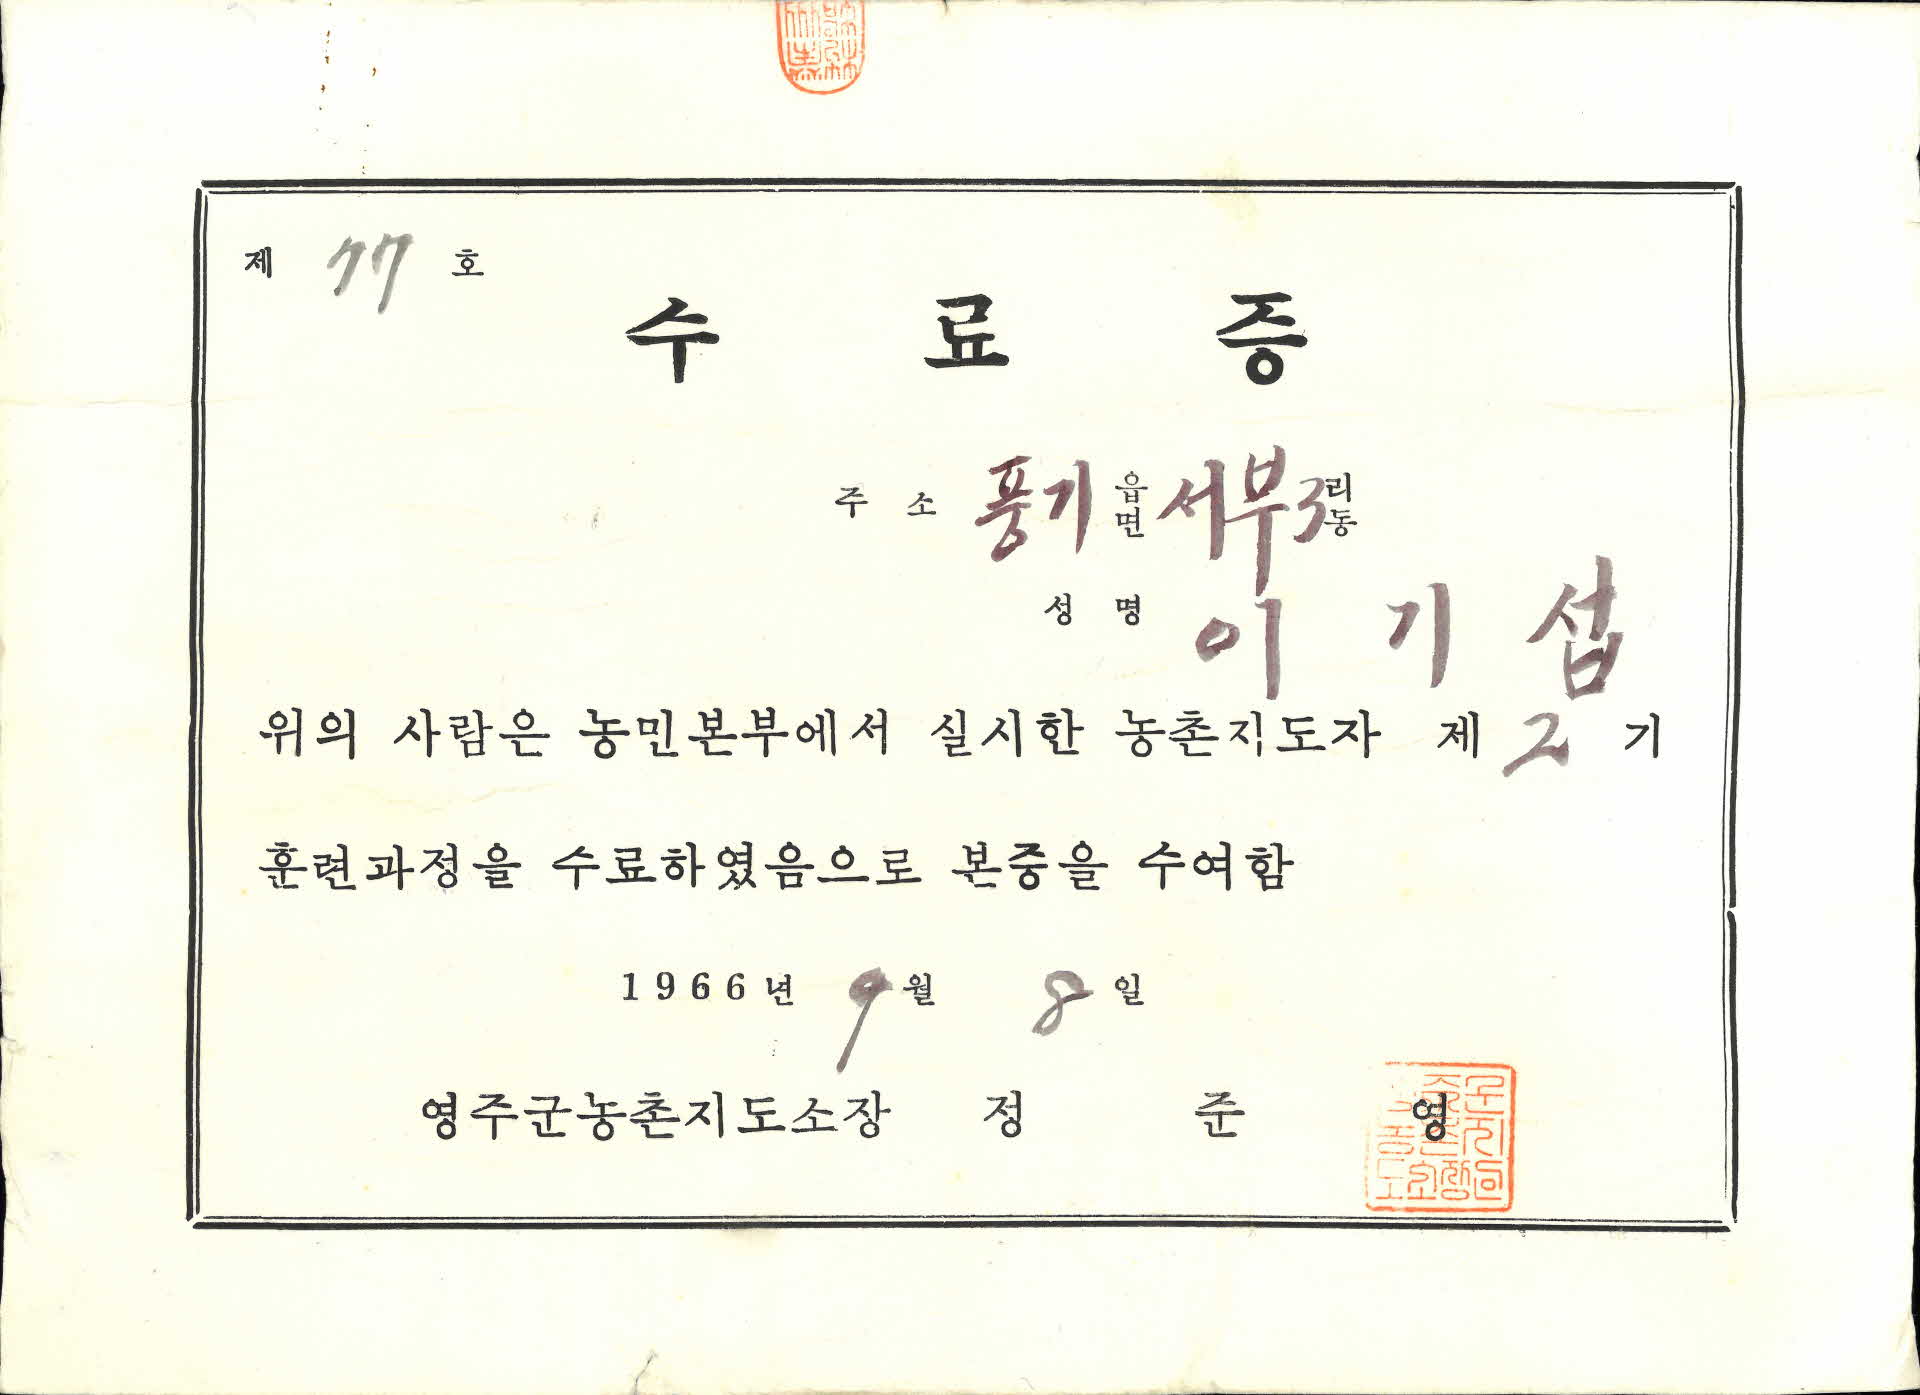 제 77 호
수 료 증
주 소 풍기 읍면 서부3 리동
성 명 이 기 섭
위의 사람은 농민본부에서 실시한 농촌지도자 제 2 기
훈련과정을 수료하였음으로 본중을 수여함
1966년 9월 8일
영주군농촌지도소장 정 준 영